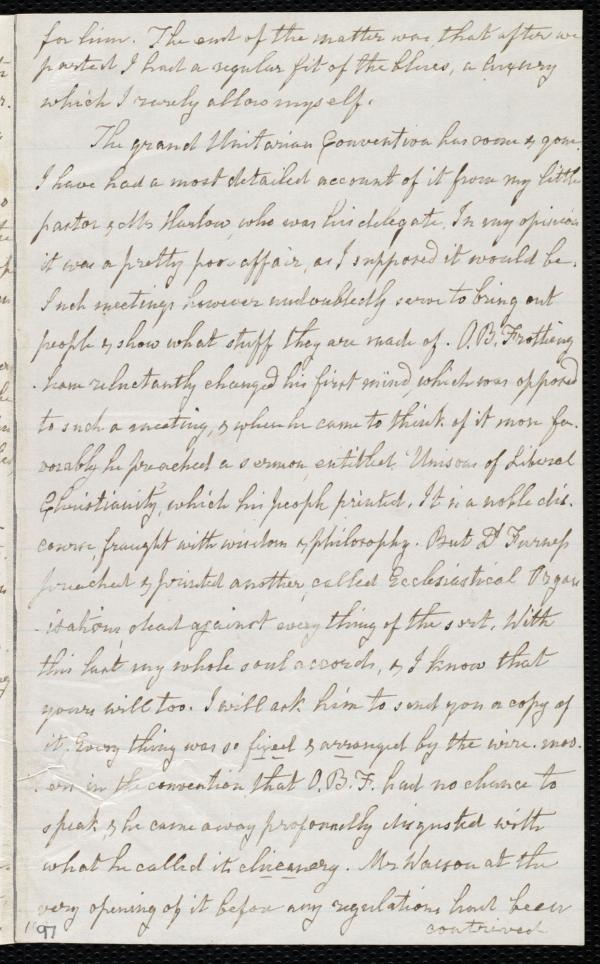 for him. The end of the matter was that after we
parted I had a regular fit of the blues, a luxury
which I rarely allow myself.
The grand Unitarian Convention has come & gone.
I have had a most detailed account of it from my little
pastor & Mr Harlow, who was his delegate. In my opinion
it was a pretty poor affair, as I supposed it would be.
Such meetings however undoubtedly serve to bring out
people & show what stuff they are made of. O.B. Frothing
-ham reluctantly changed his first mind, which was opposed
to such a meeting, & when he came to think of it more fa-
vorably he preached a sermon, entitled, "Unison of Liberal
Christianity, which his people printed. It is a noble dis-
course, fraught with wisdom & philosophy. But Dr Furness
preached & printed another, called Ecclesiastical Organ
-isations, dead against every thing of the sort. With
this last my whole soul accords, & I know that
yours will too. I will ask him to send you a copy of
it. Every thing was so fixed & arranged by the wire-mov-
-ers in the convention that O.B.F. had no chance to
speak, & he came away profoundly disgusted with
what he called its chicanery. Mr Wasson at the
very opening of it before any regulations had been
contrived
97